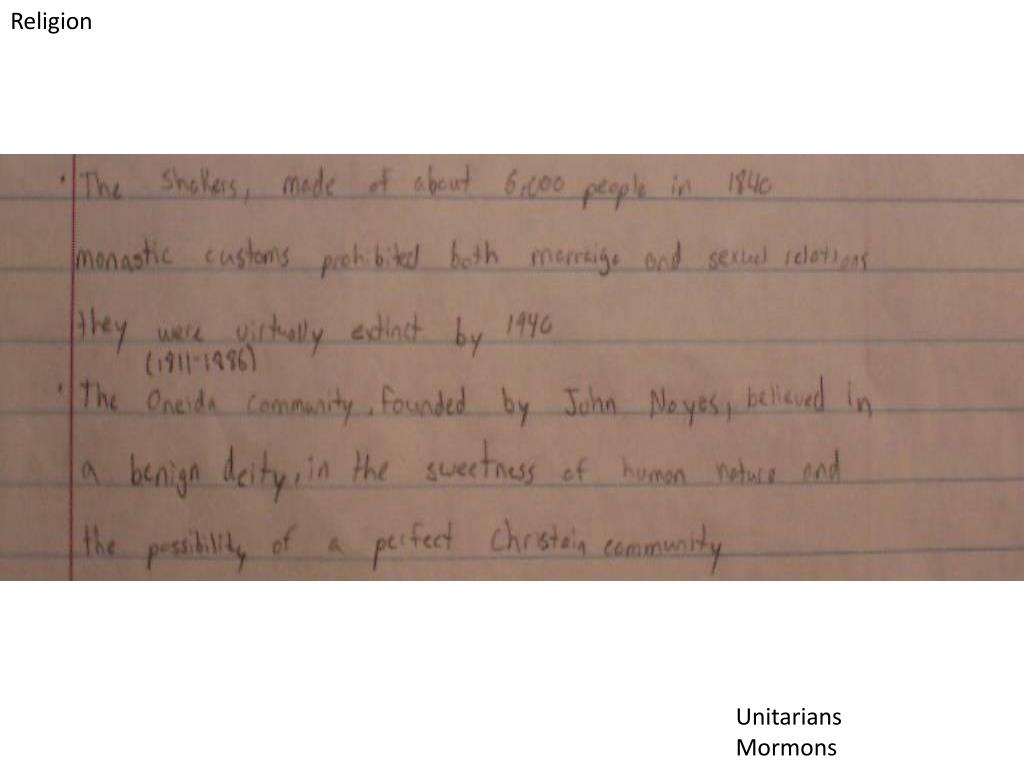 Religion
• The Shakers, made of about 6,000 people in 1840
monastic customs prohibited both marraige and sexual relations
they were virtually extinct by 1940
(1811-1886)
• The Oneida community, founded by John Noyes, believed in
a benign deity, in the sweetness of human nature and
the possibility of a perfect Christain community
Unitarians
Mormons